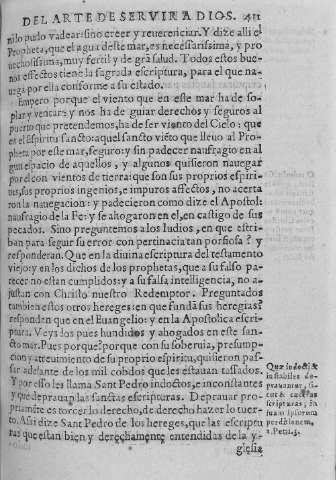 DEL ARTE DE SERVIR A DIOS. 411
nilo pudo vadear: sino creer y reuerenciar. Y dize alli el
Propheta, que el agua deste mar, es necessarissima, y pro
uechosissima, muy fertil y de grã salud. Todos estos bue-
nos effectos tiene la sagrada escriptura, para el que na-
uega por ella conforme a su estado.
Empero porque el viento que en este mar ha de so-
plar y ventar: y nos ha de guiar derechos y seguros al
puerto que pretendemos, ha de ser viento del Cielo: que
es el Espiritu sancto: aquel sancto viẽto que lleuo al Pro-
pheta por este mar, seguro: y sin padecer naufragio en al
gun espacio de aquellos, y algunos quisieron nauegar
por el con vientos de tierra: que son sus proprios espiri-
tus, sus proprios ingenios, e impuros affectos, no acerta
ron la nauegacion: y padecieron como dize el Apostol:
naufragio de la Fe: y se ahogaron en el, en castigo de sus
pecados. Sino preguntemos a los Iudios, en que estri-
ban para seguir su error con pertinacia tan porfiosa? y
responderan. Que en la diuina escriptura del testamento
viejo: y en los dichos de los prophetas, que a su falso pa-
recer no estan cumplidos: y a su falsa intelligencia, no a-
justan con Christo nuestro Redemptor. Preguntados
tambien estos otros hereges: en que fundã sus heregias?
responden que en el Euangelio: y en la Apostolica escrip
tura. Veys dos pues hundidos y ahogados en este san-
cto mar. Pues porque? porque con su soberuia, presump-
cion y atreuimiento de su proprio espiritu, quisieron pas-
sar adelante de los mil cobdos que les estauan tassados.
Y por esso les llama Sant Pedro indoctos, e inconstantes
y que deprauan las sanctas escripturas. Deprauar pro-
priamẽte es torcer lo derecho, de derecho hazer lo tuer-
to. Assi dize Sant Pedro de los hereges, que las escriptu
ras que estan bien y derechamente entendidas de la y-
glesia
Quæ indocti &
instabiles de-
prauantur, si-
cut & cæteras
scripturas, in
suam ipsorum
perditionem,
2. Petri. 3.